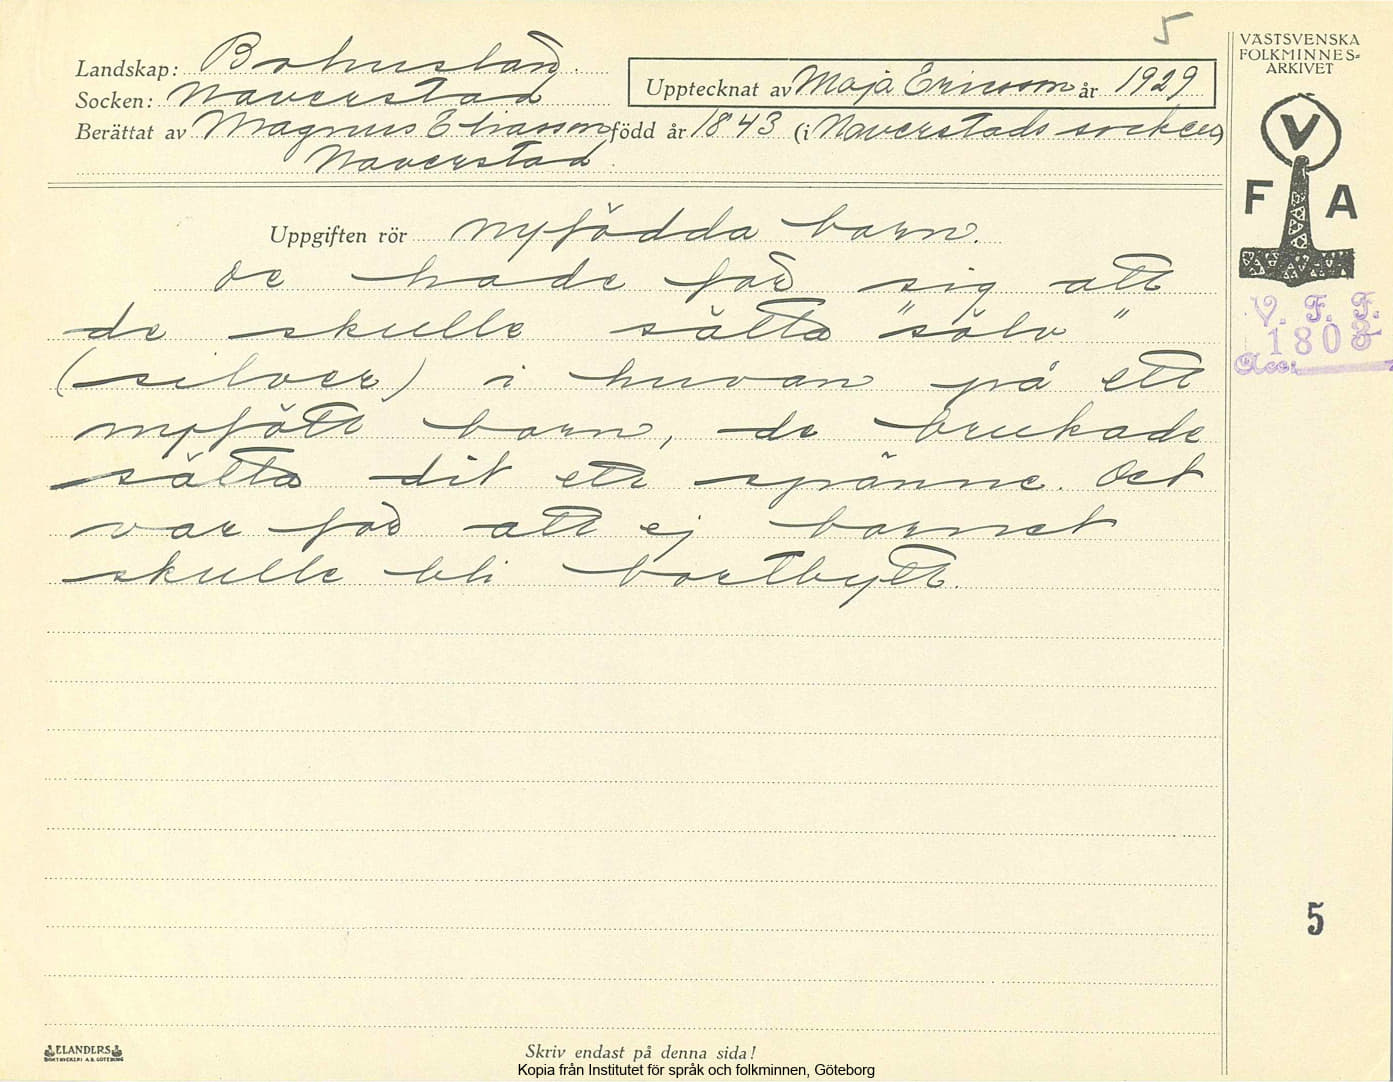 5
VÄSTSVENSKA
FOLKMINNES=
ARKIVET
Landskap: Bohuslän.
Socken: Naverstad
Upptecknat av Maja Ericsson år 1929
Berättat av Magnus Eliasson född år 1843 (i Naverstads socken)
Naverstad.
V
F A
Uppgiften rör nyfödda barn.
De hade för sig att
de skulle sätta "sölv"
(silver) i huvan på ett
nyfött barn, de brukade
sätta dit ett spänne. Det
var för att ej barnet
skulle bli bortbytt.
V. F. F.
1803
Acc:
5
ELANDERS
BOKTRYCKERI A.B. GÖTEBORG
Skriv endast på denna sida!
Kopia från Institutet för språk och folkminnen, Göteborg